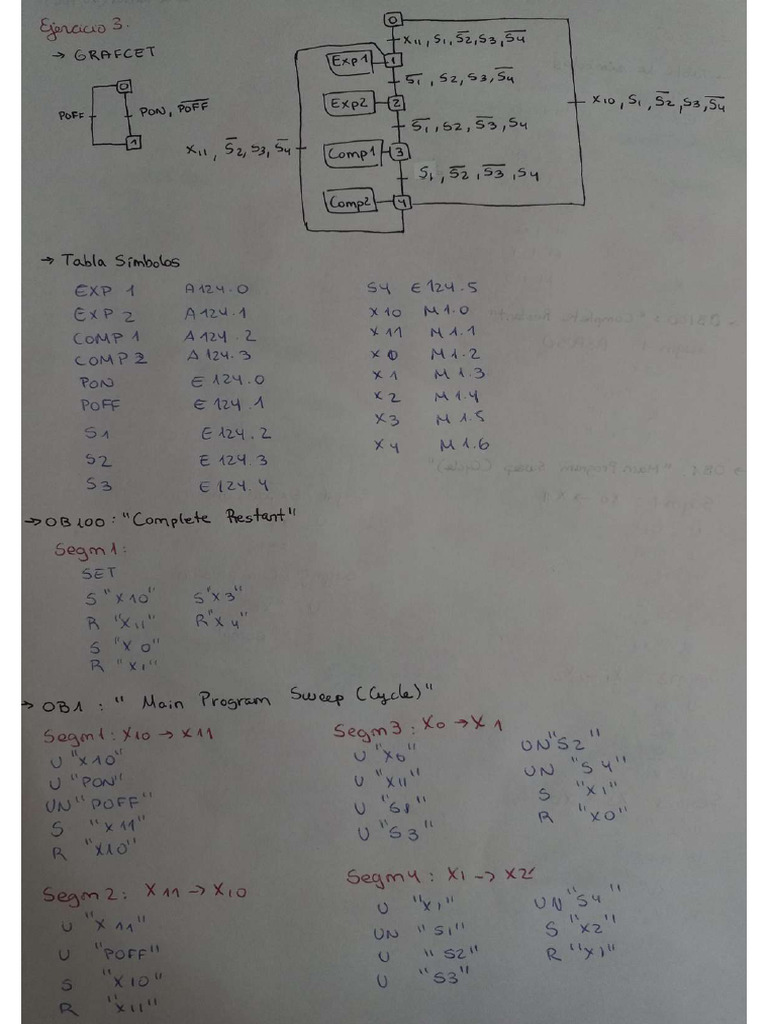 Ejercicio 3.
→ GRAFCET
0
POFF
PON, P̅O̅F̅F̅
1
0
X11, S1, S̅2̅, S3, S̅4̅
Exp1
1
S̅1̅, S2, S3, S̅4̅
Exp2
2
S̅1̅, S2, S̅3̅, S4
Comp1
3
S1, S̅2̅, S̅3̅, S4
Comp2
4
X11, S̅2̅, S3, S̅4̅
X10, S1, S̅2̅, S3, S̅4̅
→ Tabla Símbolos
EXP 1 A124.0
EXP 2 A124.1
COMP 1 A124.2
COMP 2 A124.3
PON E124.0
POFF E124.1
S1 E124.2
S2 E124.3
S3 E124.4
S4 E124.5
X10 M1.0
X11 M1.1
X0 M1.2
X1 M1.3
X2 M1.4
X3 M1.5
X4 M1.6
→ OB100: "Complete Restant"
Segm1:
SET
S "X10"
R "X11"
S "X0"
R "X1"
S "X3"
R "X4"
→ OB1: "Main Program Sweep (Cycle)"
Segm1: X10 → X11
U "X10"
U "PON"
UN "POFF"
S "X11"
R "X10"
Segm2: X11 → X10
U "X11"
U "POFF"
S "X10"
R "X11"
Segm3: X0 → X1
U "X0"
U "X11"
U "S1"
U "S3"
UN "S2"
UN "S4"
S "X1"
R "X0"
Segm4: X1 → X2
U "X1"
UN "S1"
U "S2"
U "S3"
UN "S4"
S "X2"
R "X1"